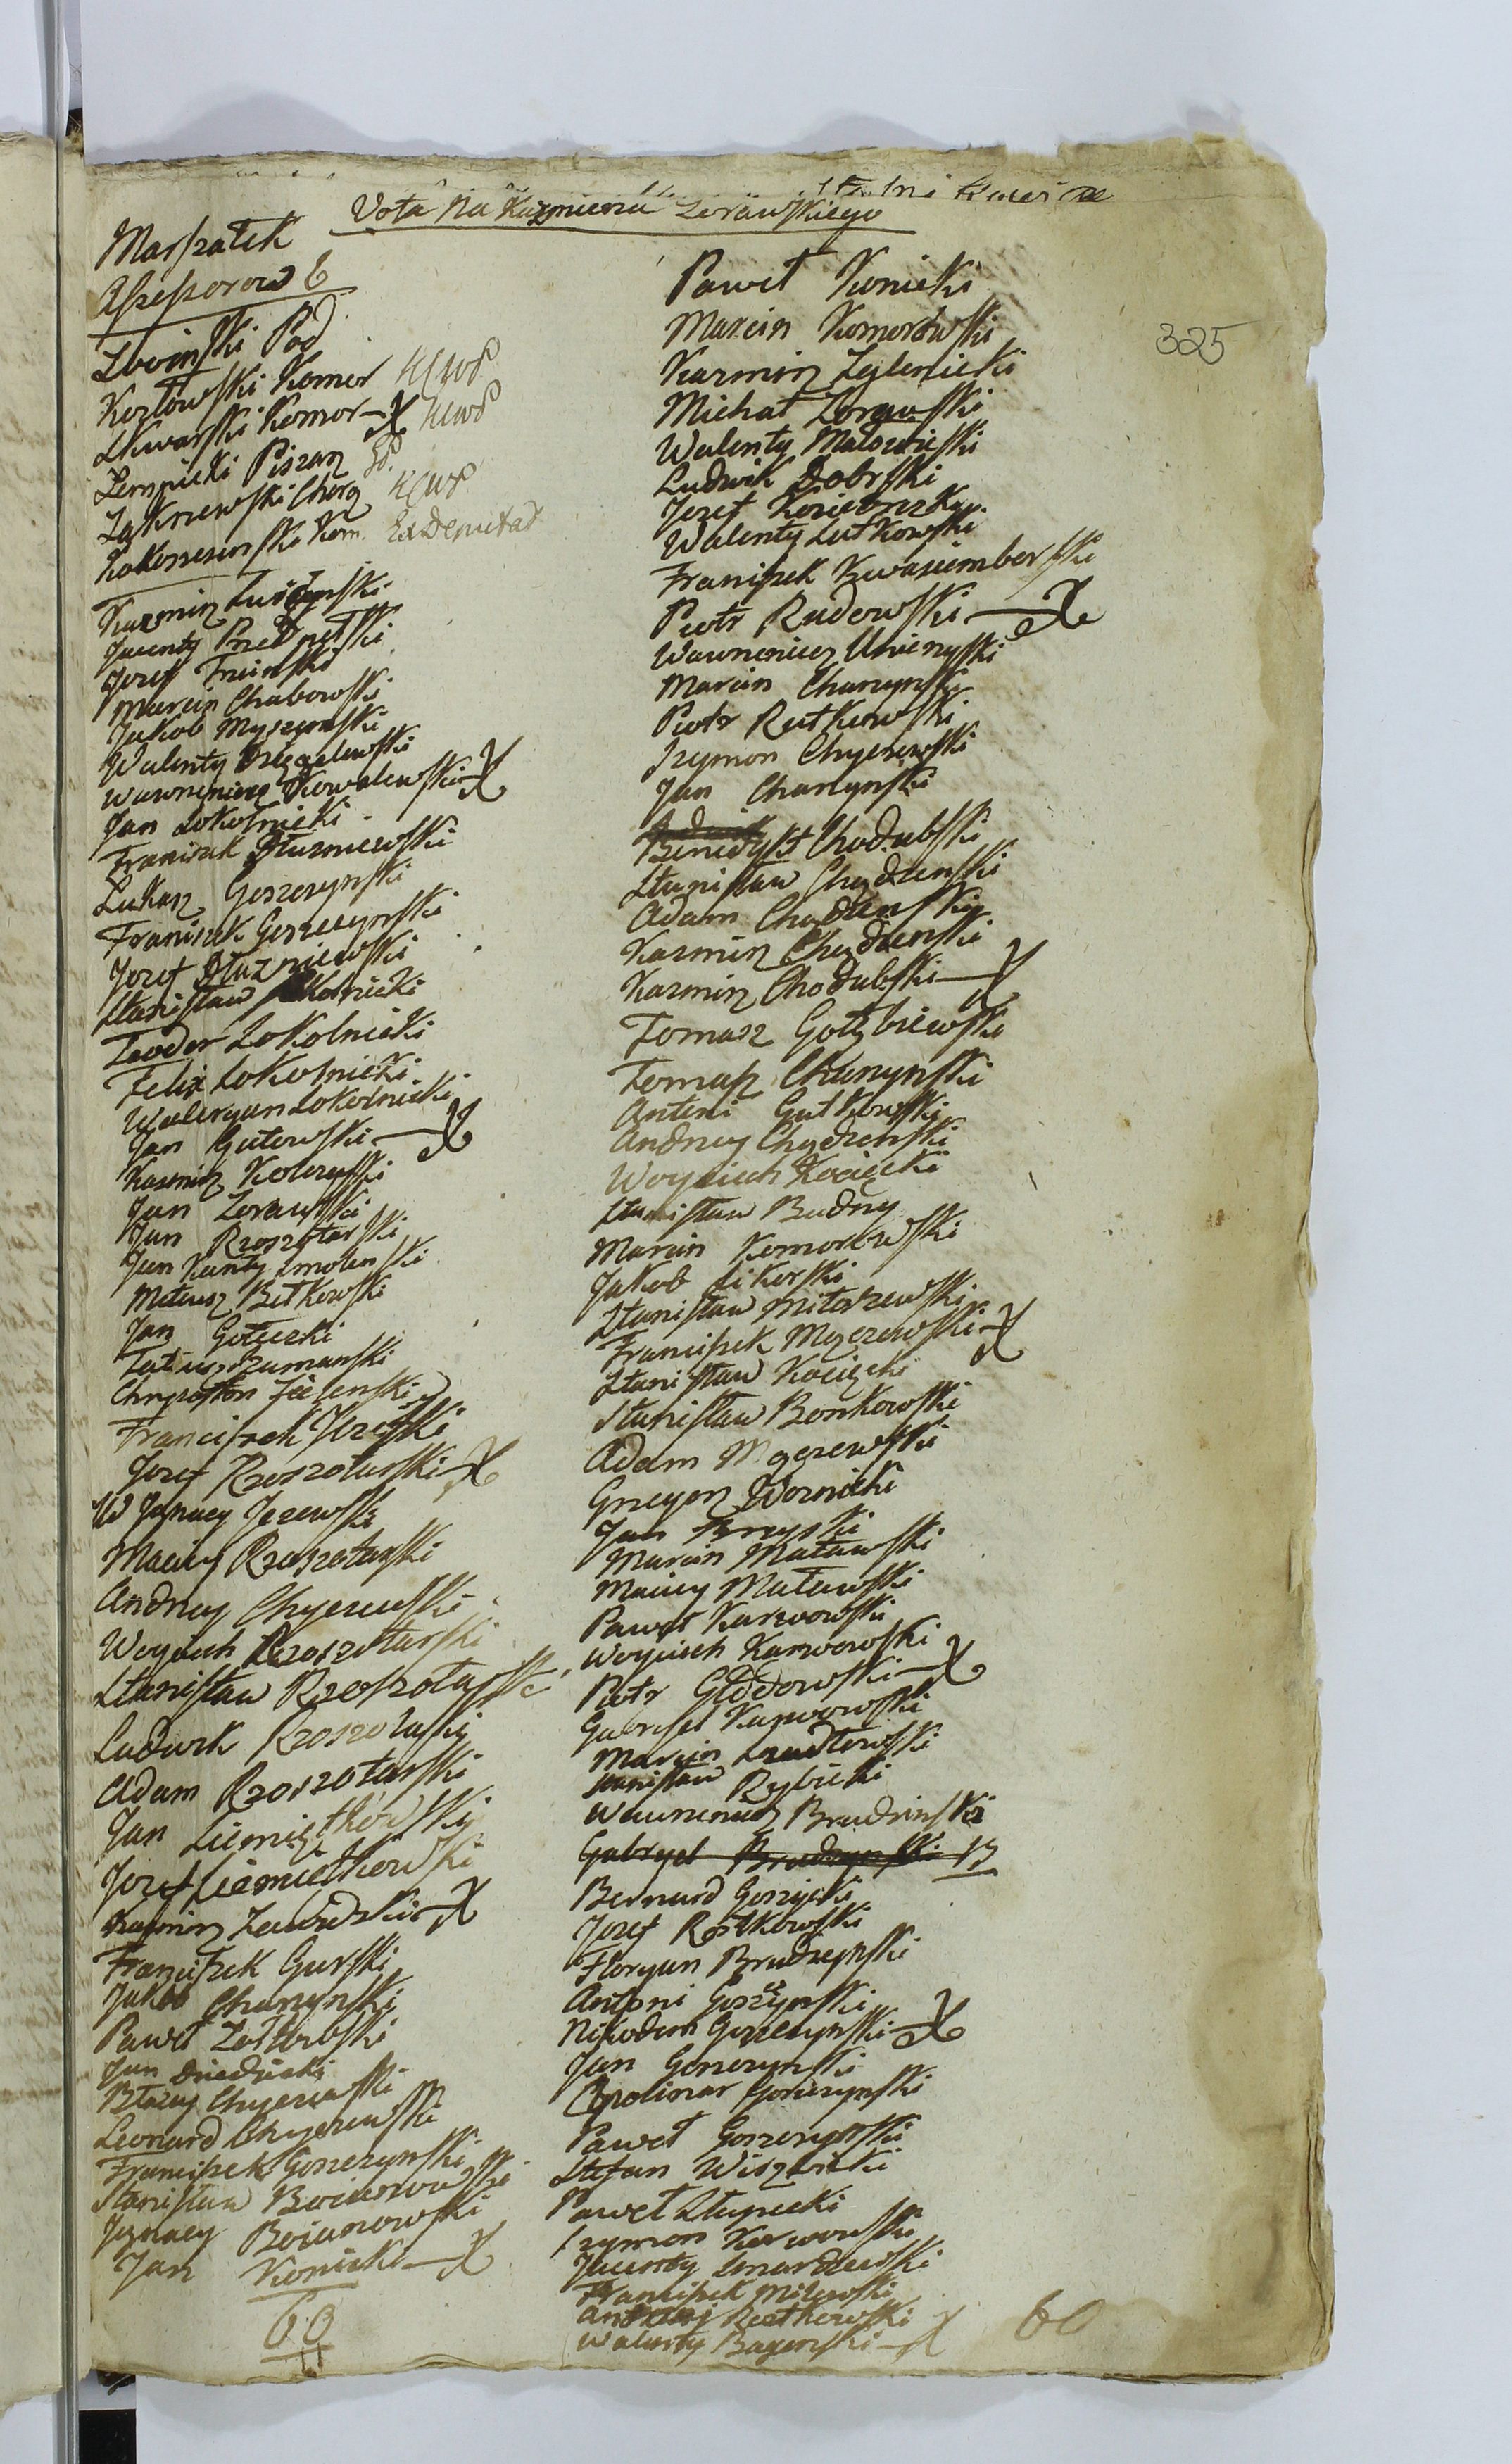 Vota Na Kazmierza Zorawskiego
325
Marszałek
Assessorow 6
Zboinski Pod
Kozłowski Komor
Skwarski Komor X
Zempicki Pisarz
Zakrzewski Chorą
Kokoszewski Kom. Ex Deputat
Kazmirz
Jacenty
Jozef
Marcin Chabowski
Jakob Myszynski
Walenty
Wawrzeniec Kowalewski X
Jan Sokolnicki
Franiszek Dłuzniewski
Łukasz Goszczynski
Franiszek Goszczynski
Jozef Dłuzniewski
Stanisław Sokolnicki
Teodor Sokolnicki
Felix Sokolnicki
Waleryan Sokolnicki
Jan Gutowski X
Kazmirz Kolczynski
Jan Zorawski
Jan Rzoszotarski
Jan Kanty Smolenski
Mateusz Betkowski
Jan Gołecki
Szumanski
Chryzostom Jezenski
Franciszek Jezeski
Jozef Rzoszotarski X
W Jgnacy Jezewski
Maciey Rzoszotarski
Andrzey Chyczewski
Woyciech Rzoszotarski
Stanisław Rzoszotarski
Ludwik Rzoszotarski
Adam Rzoszotarski
Jan Siemiątkowski
Jozef Siemiatkowski
Kazmirz Zawadzki X
Franciszek Gurski
Jakob Charzynski
Paweł Zołtowski
Jan Dziedzicki
Błazey Chyczewski
Leonard Chyczewski
Franciszek Goszczynski
Stanisław Boianowski
Jgnacy Boianowski
Jan Konicki X
60
Paweł Konicki
Marcin Komorowski
Kazmirz
Michał Zorawski
Walenty Małowieski
Ludwik Dobrski
Jozef Koziebrodzki
Walenty Lutkowski
Franiszek Kwasiemborski
Piotr Radowski X
Wawrzeniec
Marcin Charzynski
Piotr Rutkowski
Szymon Chyczewski
Jan Charzynski
Benedykt Chodubski
Stanisław Chydzenski
Adam Chydzenski
Kazmirz Chydzenski
Kazmirz Chodubski X
Tomasz Gołębiewski
Tomasz Charzynski
Antoni Gutkowski
Andrzey Chydzenski
Woyciech Kocięcki
Stanisław Budny
Marcin Komorowski
Jakob Sikorski
Stanisław Mitarzewski
Franciszek Myczewski X
Stanisław Kocięcki
Stanisław Bonkowski
Adam Myczewski
Grzegorz Woznicki
Jan Brzyski
Marcin Matawski
Maciey Matawski
Paweł Karwowski
Woyciech Karwowski
Piotr Głodowski X
Gabryel Karwowski
Marcin
Stanisław Rybicki
Wawrzeniec Brudzinski
Gabryel Brudzynski 13
Bernard Goszycki
Jozef Rostkowski
Floryan Brudzynski
Antoni Goszczynski
Nikodem Goszczynski X
Jan Goszczynski
Apolinar Goszczynski
Paweł Goszczynski
Stefan Wiszowaki
Paweł Słupecki
Szymon Karwowski
Jacenty Smardzewski
Franciszek Milewski
Andrzej Rutkowski
Walenty Bagenski X
60